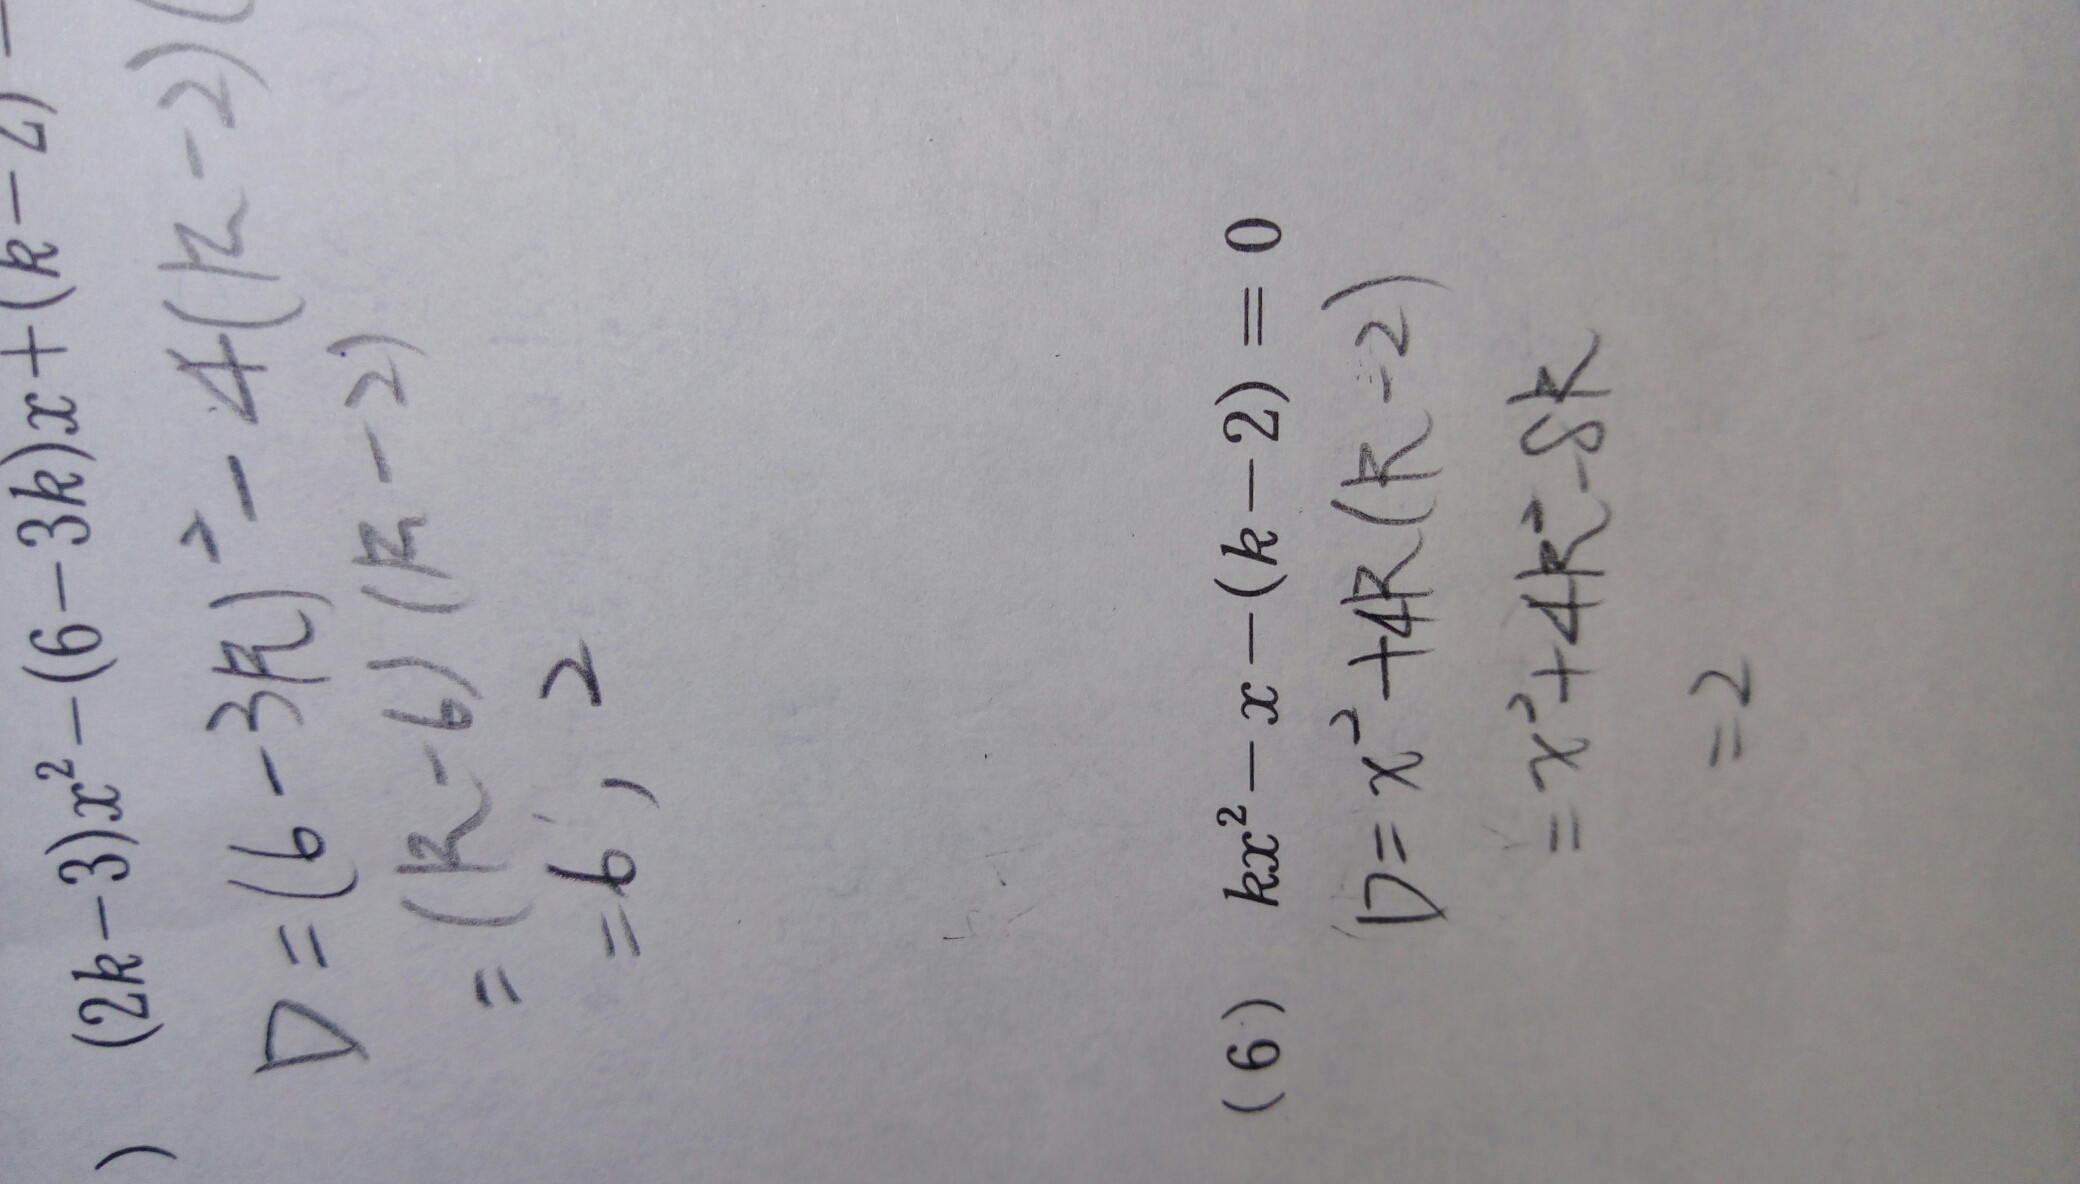 ) (2k-3)x²-(6-3k)x+(k-2)
D=(6-3k)²-4(k-2)(
=(k-6)(k-2)
=6, 2
(6) kx²-x-(k-2)=0
D=x²+4k(k-2)
=x²+4k²-8k
=2